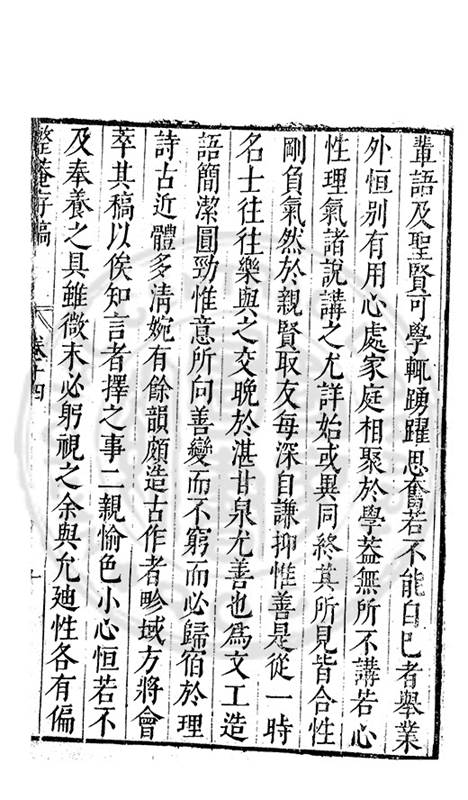 輩語及聖賢可學輒踴躍思奮若不能自已者舉業
外恒别有用心處家庭相聚於學葢無所不講若心
性理氣諸説講之尤詳始或異同終其所見皆合性
剛負氣然於親賢取友每深自謙抑惟善是從一時
名士往往樂與之交晚於湛甘泉尤善也爲文工造
語簡潔圓勁惟意所向善變而不窮而必歸宿於理
詩古近體多淸婉有餘韻頗造古作者畛域方將會
萃其稿以俟知言者擇之事二親愉色小心恒若不
及奉養之具雖微末必躬視之余與允廸性各有偏
整菴存稿 卷十四